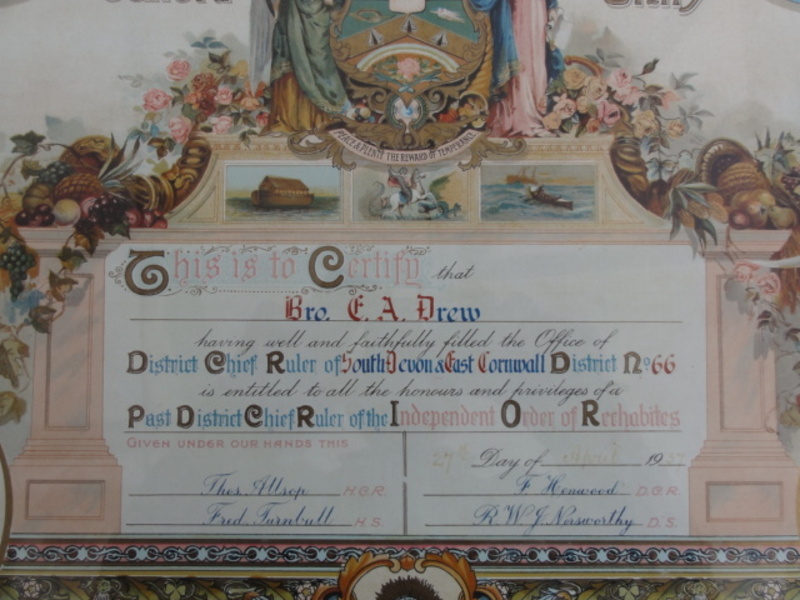 PEACE & PLENTY THE REWARD OF TEMPERANCE
This is to Certify that
Bro. E. A. Drew
having well and faithfully filled the Office of
District Chief Ruler of South Devon & East Cornwall District No. 66
is entitled to all the honours and privileges of a
Past District Chief Ruler of the Independent Order of Rechabites
GIVEN UNDER OUR HANDS THIS
27th Day of April 1937
Thos. Allsop H.C.R. F. Henwood D.C.R.
Fred. Turnbull H.S. R. W. J. Norsworthy D.S.